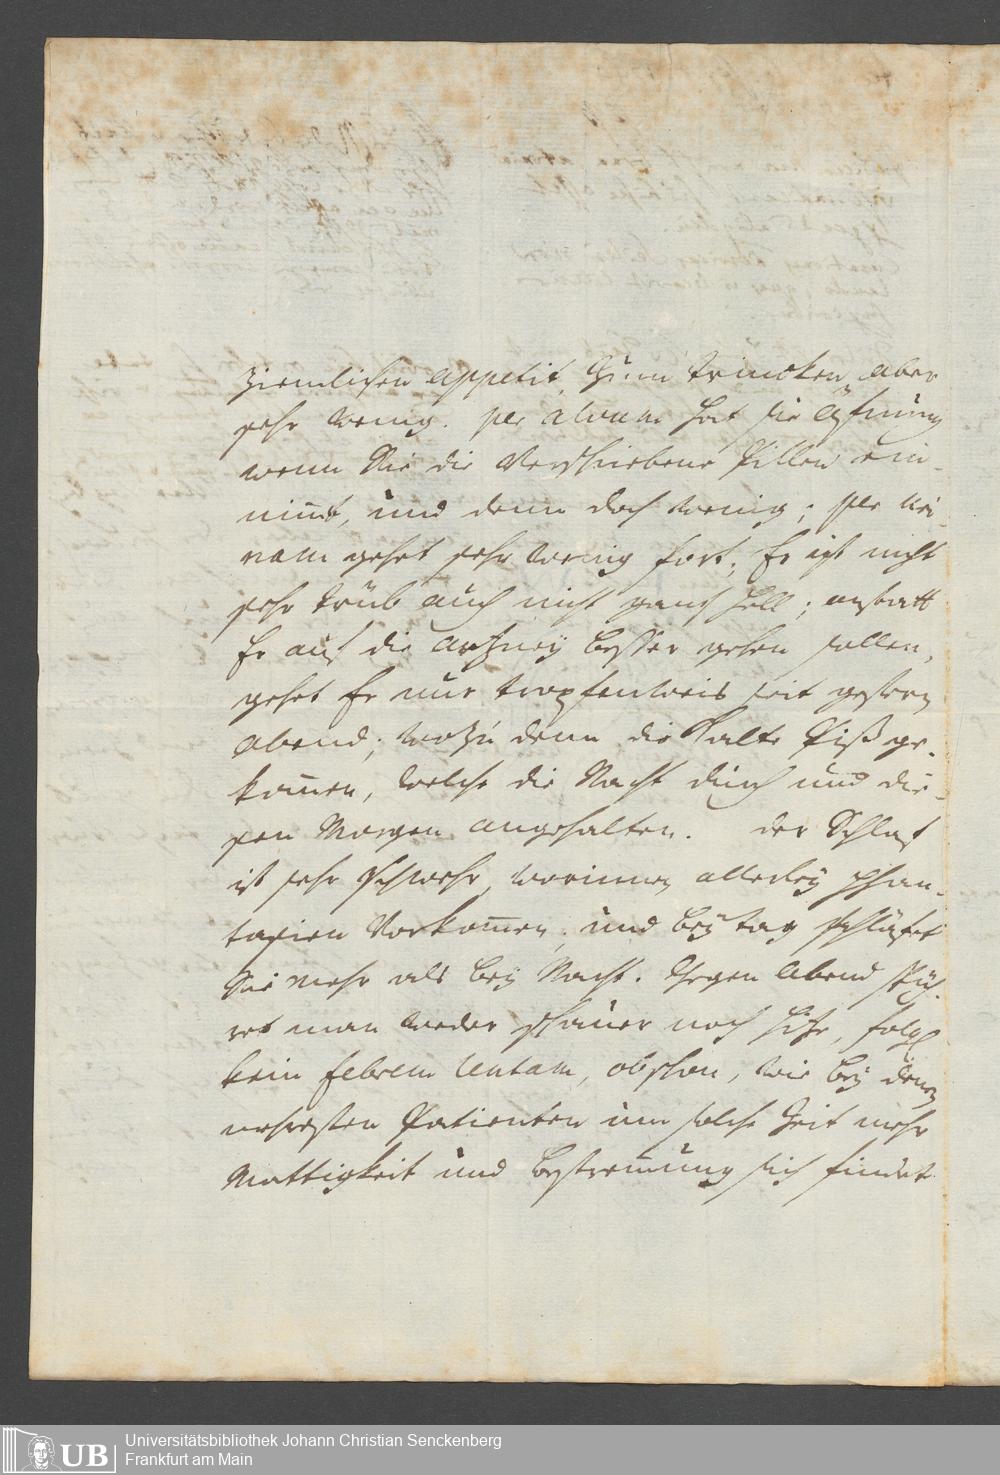 ziemlichen appetit, Zum trincken aber
sehr wenig. per alvum hat sie Öfnung
wenn Sie die Verschriebene Pillen ein-
nimt, und denn doch wenig; per uri-
nam gehet sehr wenig fort, Er ist nicht
sehr trüb auch nicht gantz hell; anstatt
Er auf die artzney besser gehen sollen,
gehet Er nur tropfenweis seit gestern
abend; wozu denn die Kalte Piß ge-
kom̄en, welche die Nacht durch und die-
sen Morgen angehalten. der Schlaf
ist sehr schwehr, worinnen allerley phan-
tasien Vorkom̄en, und bey tag schläfet
Sie mehr als bey Nacht. Gegen Abend spüh-
ret man weder schauer noch hitze, folgl.
kein febrem lentam, obschon, wie bey denen
mehresten Patienten um solche Zeit mehr
Mattigkeit und sich findet
Universitätsbibliothek Johann Christian Senckenberg
Frankfurt am Main
UB